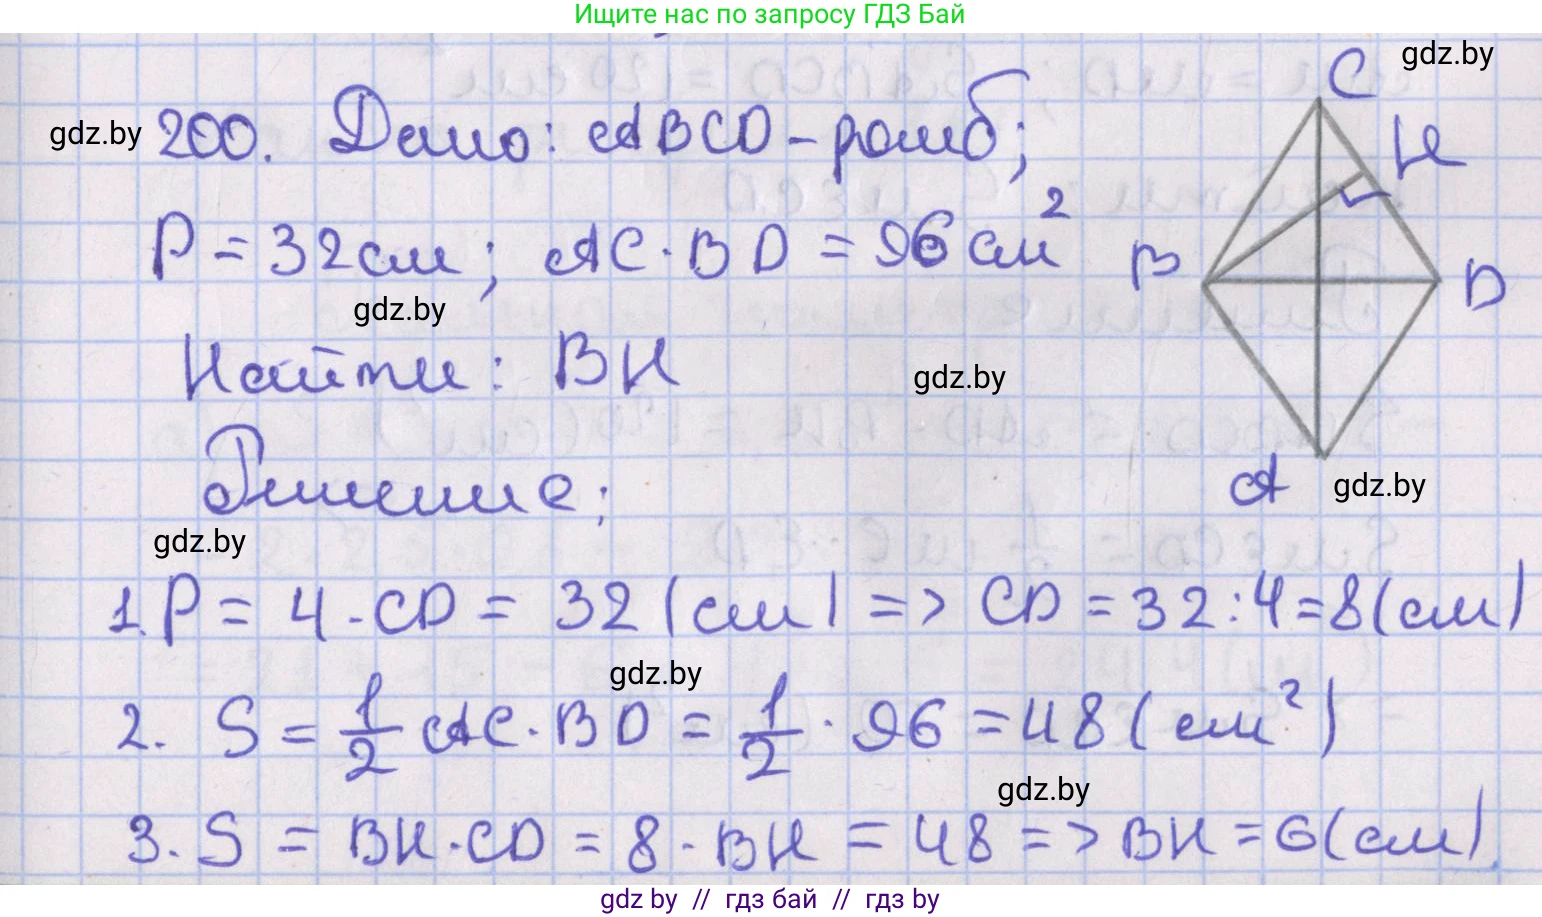 Ищите нас по запросу ГДЗ Бай
gdz.by
C
gdz.by
200. Дано: ABCD - ромб;
H
P = 32 см; AC · BD = 96 см²
B
D
gdz.by
Найти: BH
gdz.by
A
gdz.by
Решение:
gdz.by
1. P = 4 · CD = 32 (см) => CD = 32 : 4 = 8 (см)
gdz.by
2. S = 1/2 AC · BD = 1/2 · 96 = 48 (см²)
gdz.by
3. S = BH · CD = 8 · BH = 48 => BH = 6 (см).
gdz by // гдз бай // гдз by